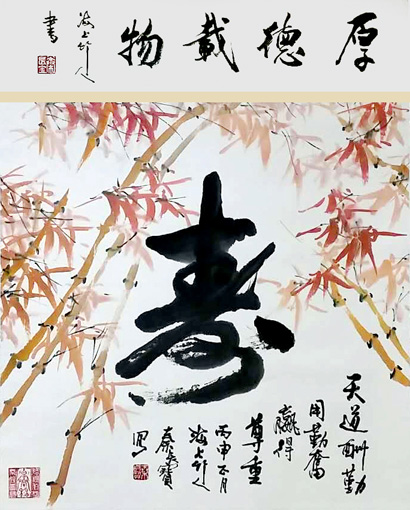 厚德載物
海上竹人
書
壽
天道酬勤
用勤奮
贏得
尊重
丙申五月
海上竹人